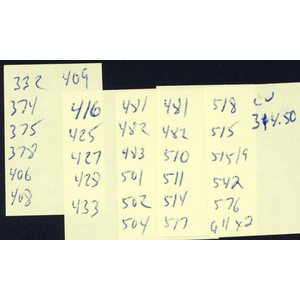 332 409
374
375
378
406
408
416
425
427
428
433
481
482
483
501
502
504
481
482
510
511
514
517
518
515
515/9
542
576
G4x2
CV
314.50